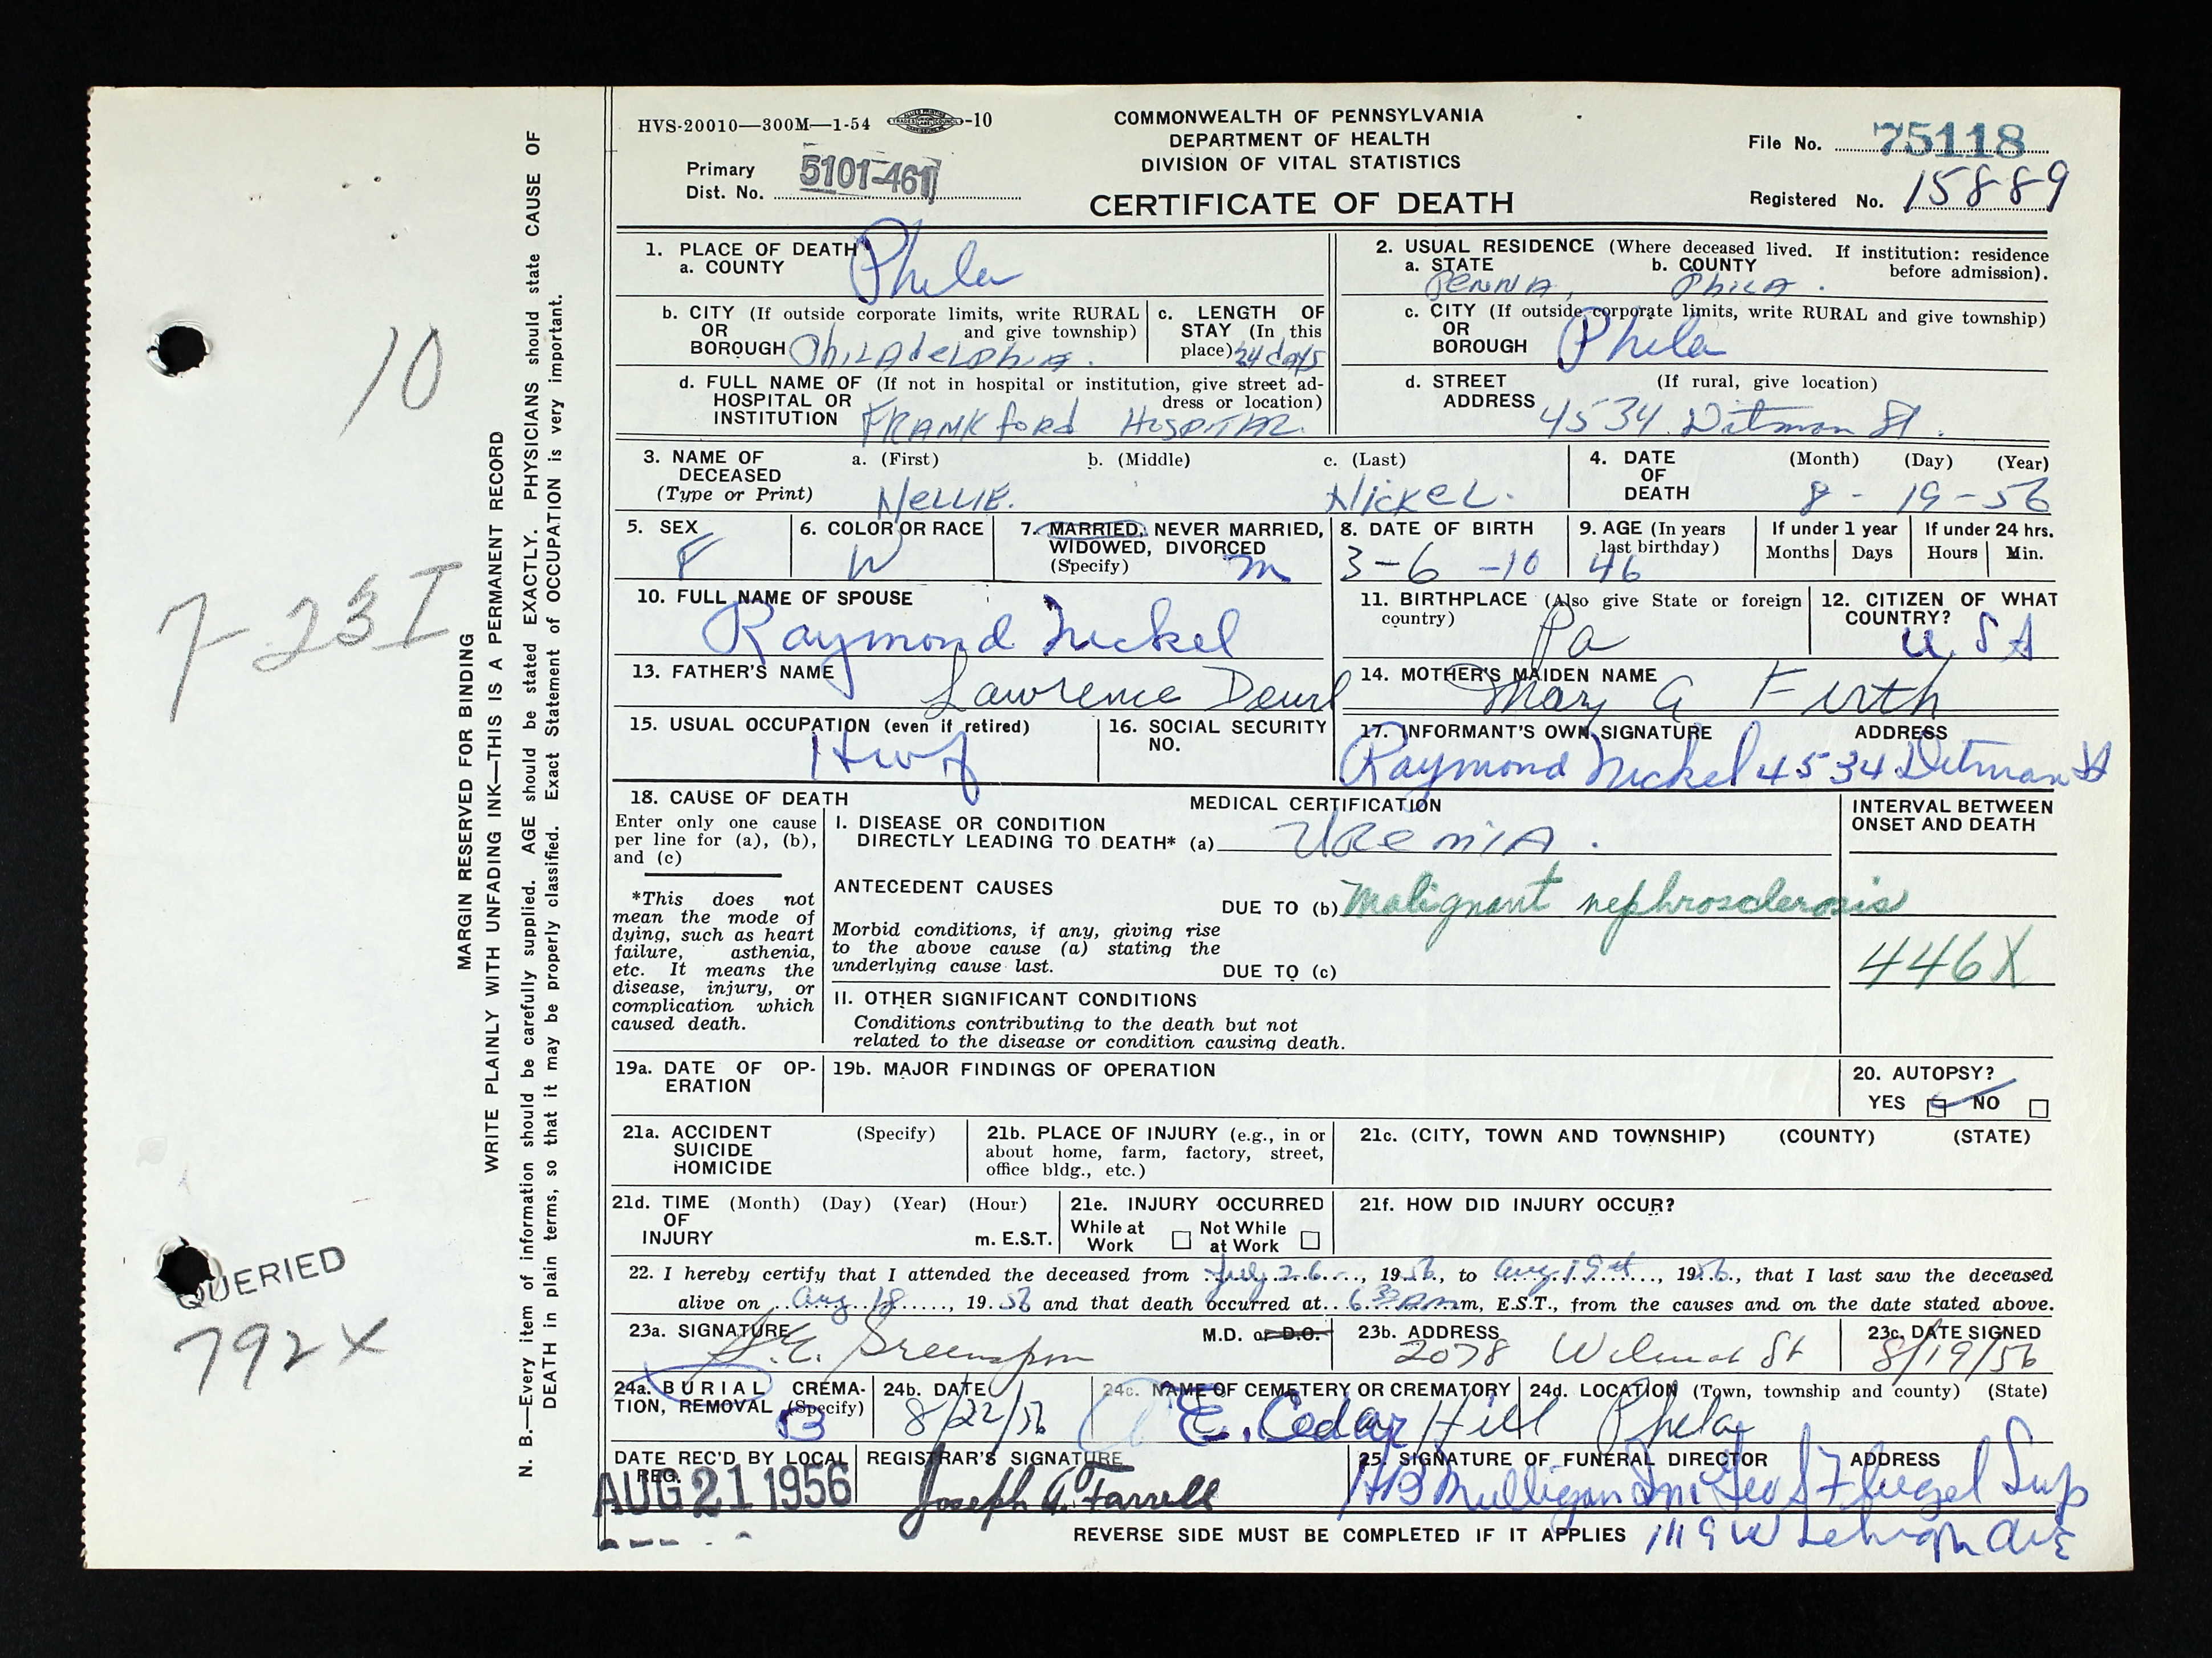 HVS-20010—300M—1-54 -10
COMMONWEALTH OF PENNSYLVANIA
DEPARTMENT OF HEALTH
DIVISION OF VITAL STATISTICS
CERTIFICATE OF DEATH
Primary Dist. No. 5101-461
File No. 75118
Registered No. 15889
10
7-23I
QUERIED
792X
MARGIN RESERVED FOR BINDING
WRITE PLAINLY WITH UNFADING INK—THIS IS A PERMANENT RECORD
N. B.—Every item of information should be carefully supplied. AGE should be stated EXACTLY. PHYSICIANS should state CAUSE OF
DEATH in plain terms, so that it may be properly classified. Exact Statement of OCCUPATION is very important.
1. PLACE OF DEATH
a. COUNTY Phila
2. USUAL RESIDENCE (Where deceased lived. If institution: residence before admission).
a. STATE PENNA, b. COUNTY PhilA.
b. CITY (If outside corporate limits, write RURAL
OR and give township)
BOROUGH PhiLAdeLphiA.
c. LENGTH OF
STAY (In this
place) 24 days
c. CITY (If outside corporate limits, write RURAL and give township)
OR
BOROUGH Phila
d. FULL NAME OF (If not in hospital or institution, give street ad-
HOSPITAL OR dress or location)
INSTITUTION FRANKford HOSPITAL
d. STREET (If rural, give location)
ADDRESS 4534 Ditman St.
3. NAME OF a. (First) b. (Middle) c. (Last)
DECEASED
(Type or Print) NELLIE. NickeL.
4. DATE (Month) (Day) (Year)
OF
DEATH 8 - 19 - 56
5. SEX F
6. COLOR OR RACE W
7. MARRIED, NEVER MARRIED,
WIDOWED, DIVORCED
(Specify) m
8. DATE OF BIRTH
3-6-10
9. AGE (In years
last birthday)
46
If under 1 year
Months Days
If under 24 hrs.
Hours Min.
10. FULL NAME OF SPOUSE
Raymond Nickel
11. BIRTHPLACE (Also give State or foreign
country) Pa
12. CITIZEN OF WHAT
COUNTRY?
U S A
13. FATHER'S NAME
Lawrence
14. MOTHER'S MAIDEN NAME
Mary A Firth
15. USUAL OCCUPATION (even if retired)
Hwf
16. SOCIAL SECURITY
NO.
17. INFORMANT'S OWN SIGNATURE ADDRESS
Raymond Nickel 4534 Ditman St
18. CAUSE OF DEATH
Enter only one cause
per line for (a), (b),
and (c)
*This does not
mean the mode of
dying, such as heart
failure, asthenia,
etc. It means the
disease, injury, or
complication which
caused death.
MEDICAL CERTIFICATION
I. DISEASE OR CONDITION
DIRECTLY LEADING TO DEATH* (a) URemiA.
ANTECEDENT CAUSES
DUE TO (b) Malignant nephrosclerosis
Morbid conditions, if any, giving rise
to the above cause (a) stating the
underlying cause last.
DUE TO (c)
II. OTHER SIGNIFICANT CONDITIONS
Conditions contributing to the death but not
related to the disease or condition causing death.
INTERVAL BETWEEN
ONSET AND DEATH
446X
19a. DATE OF OP-
ERATION
19b. MAJOR FINDINGS OF OPERATION
20. AUTOPSY?
YES NO
21a. ACCIDENT (Specify)
SUICIDE
HOMICIDE
21b. PLACE OF INJURY (e.g., in or
about home, farm, factory, street,
office bldg., etc.)
21c. (CITY, TOWN AND TOWNSHIP) (COUNTY) (STATE)
21d. TIME (Month) (Day) (Year) (Hour)
OF
INJURY m. E.S.T.
21e. INJURY OCCURRED
While at Work Not While at Work
21f. HOW DID INJURY OCCUR?
22. I hereby certify that I attended the deceased from July 26, 1956, to Aug. 19th, 1956, that I last saw the deceased
alive on Aug 18, 1956 and that death occurred at 6 30 Am m, E.S.T., from the causes and on the date stated above.
23a. SIGNATURE M.D. or D.O.
23b. ADDRESS
2078 St
23c. DATE SIGNED
8/19/56
24a. BURIAL CREMA-
TION, REMOVAL (Specify)
B
24b. DATE
8/22/56
24c. NAME OF CEMETERY OR CREMATORY
E. Cedar Hill
24d. LOCATION (Town, township and county) (State)
Phila
DATE REC'D BY LOCAL
REG.
AUG 21 1956
REGISTRAR'S SIGNATURE
Joseph A. Farrell
25. SIGNATURE OF FUNERAL DIRECTOR ADDRESS
HB Mulligan Inc Geo S Fluegel Sup
1119 W Lehigh Ave
REVERSE SIDE MUST BE COMPLETED IF IT APPLIES